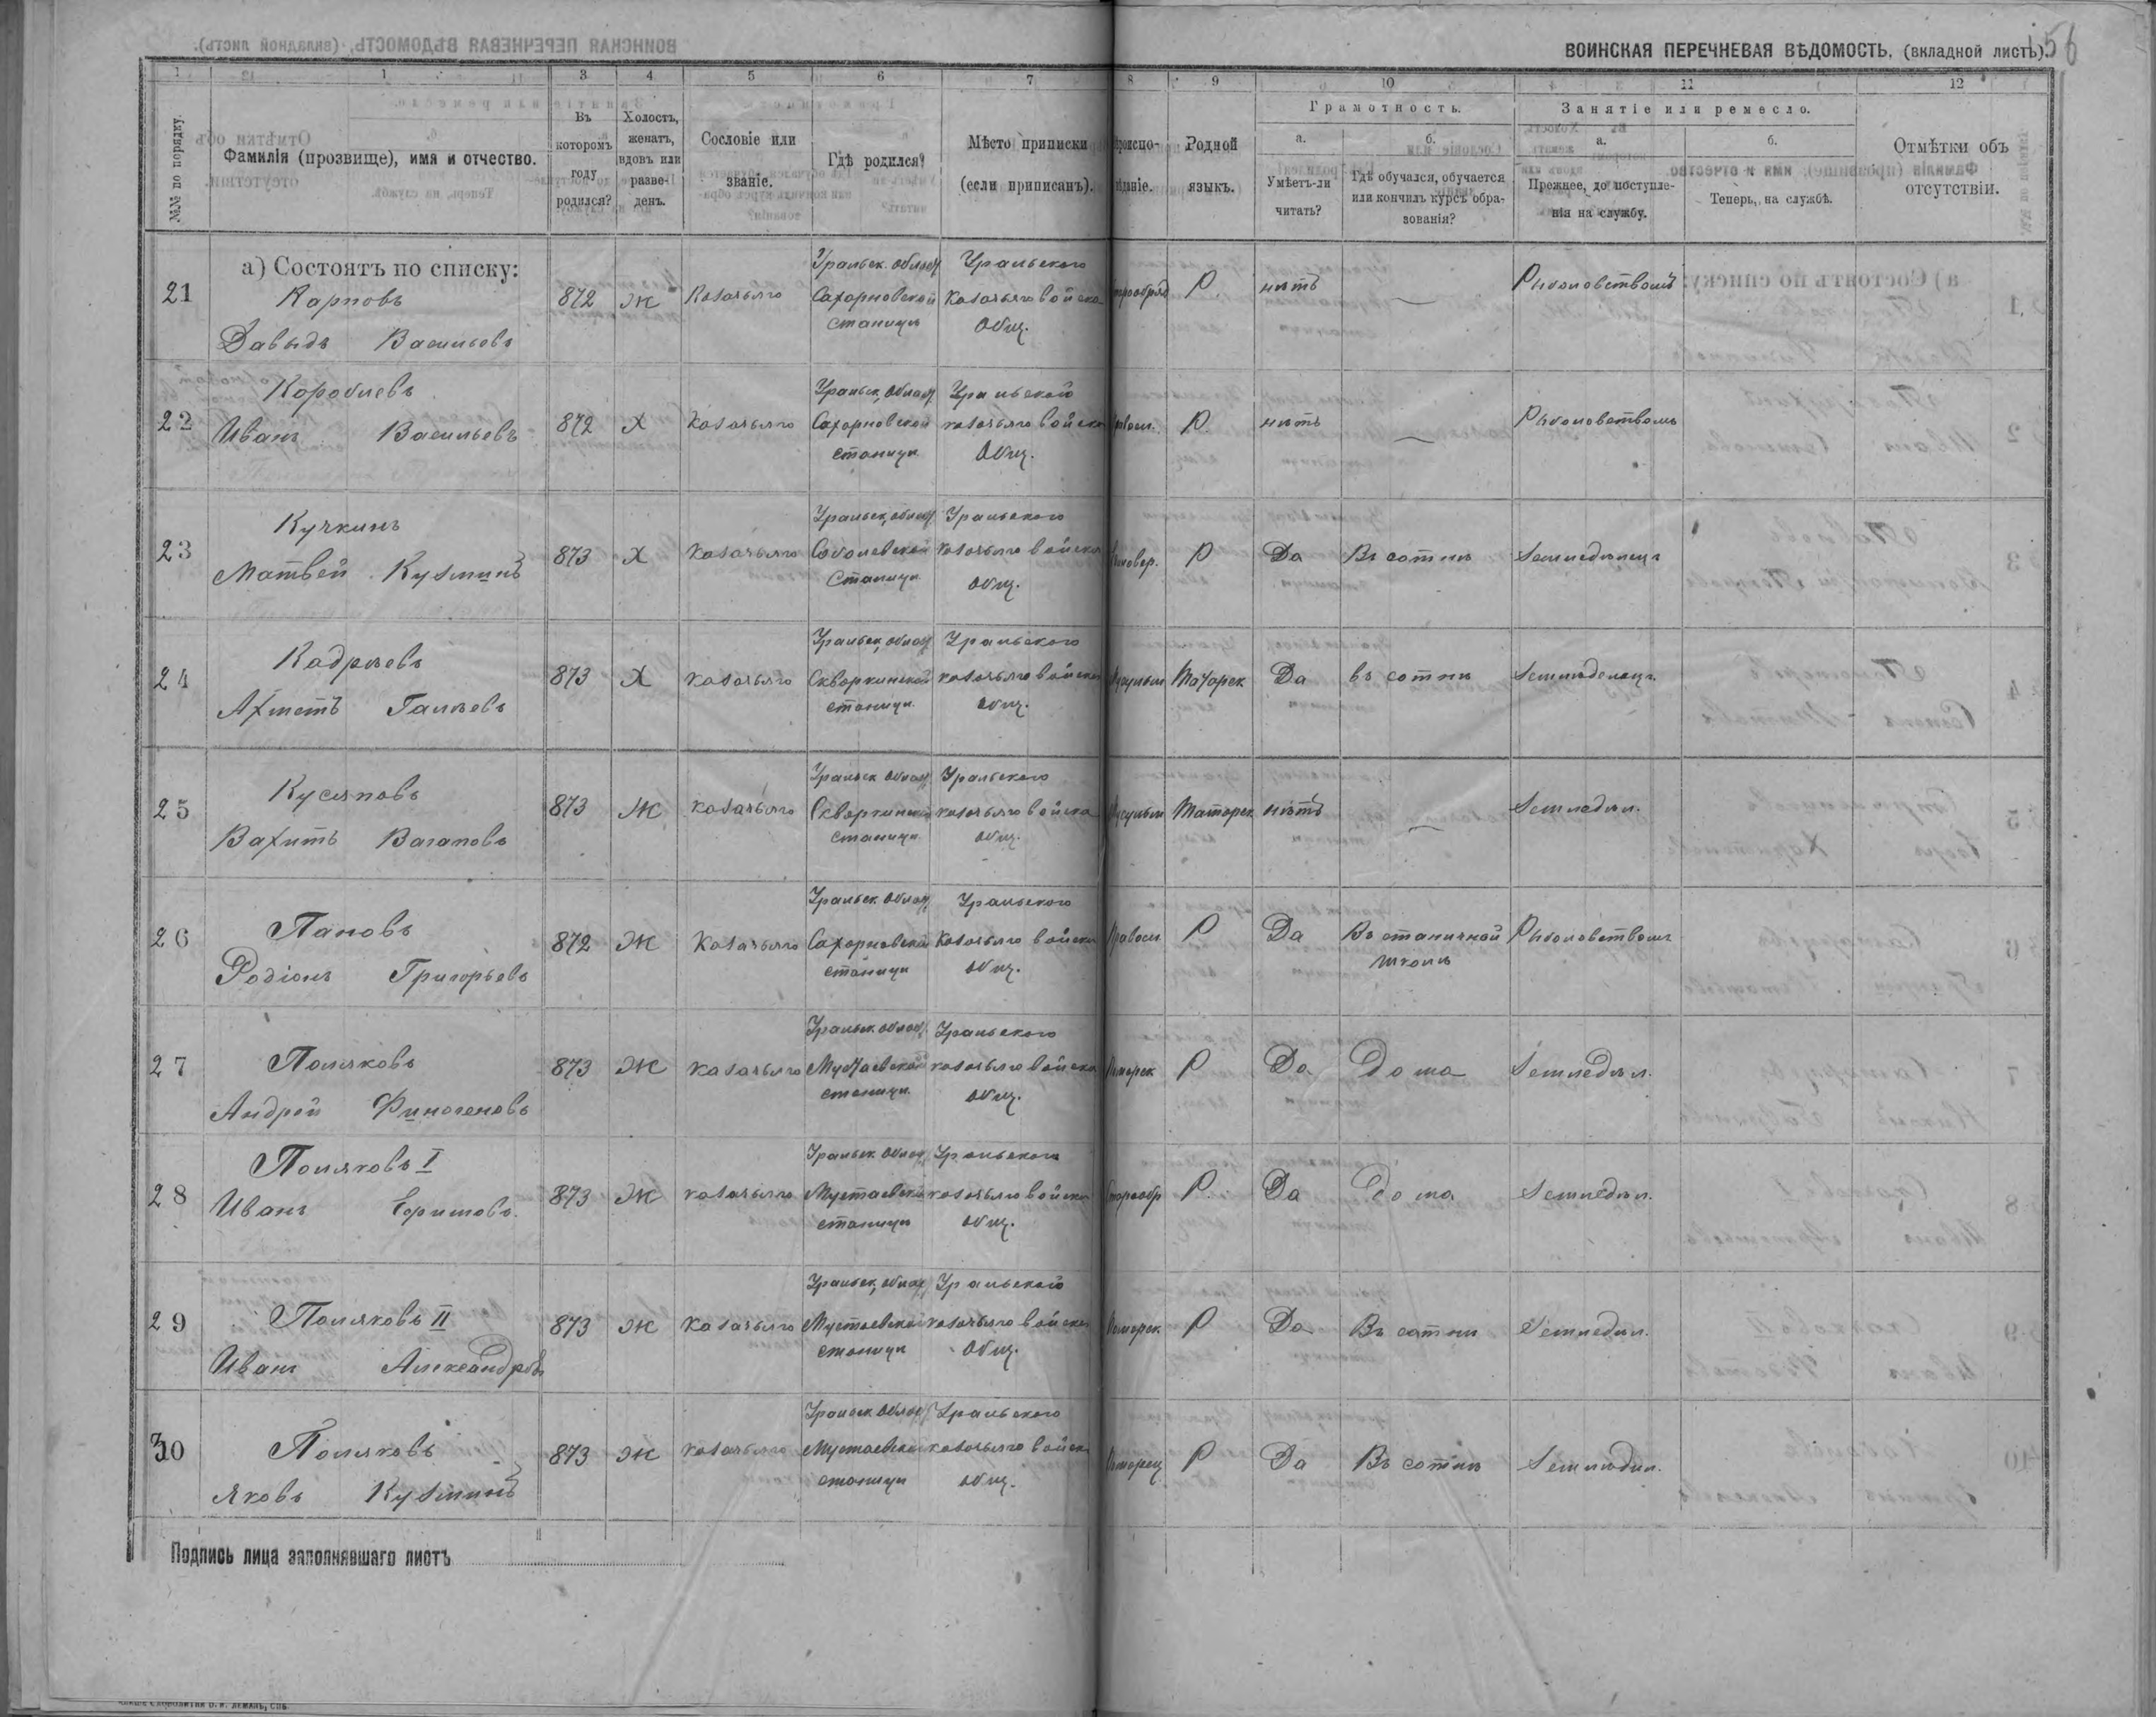 ВОИНСКАЯ ПЕРЕЧНЕВАЯ ВѢДОМОСТЬ, (вкладной листъ).
156
1 1 3 4 5 6 7 8 9 10 11 12
№№ по порядку.
Фамилія (прозвище), имя и отчество.
Въ которомъ году родился?
Холостъ, женатъ, вдовъ или разведенъ.
Сословіе или званіе.
Гдѣ родился?
Мѣсто приписки (если приписанъ).
Родной языкъ.
Грамотность.
а. Умѣетъ-ли читать?
б. Гдѣ обучался, обучается или кончилъ курсъ образованія?
Занятіе или ремесло.
а. Прежнее, до поступленія на службу.
б. Теперь, на службѣ.
Отмѣтки объ отсутствіи.
а) Состоятъ по списку:
21 Карповъ Давыдъ Васильевъ 872 Ж Казачьяго Уральск. област Сахарновской станицы Уральского Казачьяго войска Общ. Р. нѣтъ — Рыболовствомъ
22 Иванъ Васильевъ 872 Х Казачьяго Уральск. област Сахарновской станицы Уральского казачьяго войска Общ. Р. нѣтъ — Рыболовствомъ
23 Кучкинъ Матвей Кузминъ 873 Х Казачьяго Уральск. област Соболевской Станицы Уральского казачьяго войска общ. Р Да Въ сотнѣ Земледѣлецъ
24 Кадряевъ Ахметъ Галѣевъ 873 Х Казачьяго Уральск. област Скворкинской станицы Уральского казачьяго войска общ. Татарск Да въ сотнѣ Земледелецъ
25 Кусяповъ Вахитъ Вагаповъ 873 Ж казачьяго Уральск област Скворкинской станицы Уральского казачьяго войска общ. Татарск нѣтъ — Земледѣл.
26 Пановъ Родіонъ Григорьевъ 872 Ж Казачьяго Уральск. област Сахарновской станицы Уральского Казачьяго войска общ. Р Да Въ станичной школѣ Рыболовствомъ
27 Поляковъ Андрей Финогеновъ 873 Ж казачьяго Уральск. област Мустаевской станицы Уральского казачьяго войска общ. Р Да Дома Земледѣл.
28 Поляковъ I Иванъ Ефимовъ 873 Ж казачьяго Уральск. област Мустаевской станицы Уральского казачьяго войска общ. Р. Да Дома Земледѣл.
29 Поляковъ II Иванъ Александровъ 873 Ж Казачьяго Уральск. област Мустаевской станицы Уральского казачьяго войска Общ. Р Да Въ сотни Земледѣл.
30 Поляковъ Яковъ Кузминъ 873 Ж казачьяго Уральск област Мустаевской станицы Уральского казачьяго войска общ. Р Да Въ сотнѣ Земледѣл.
Подпись лица заполнявшаго листъ